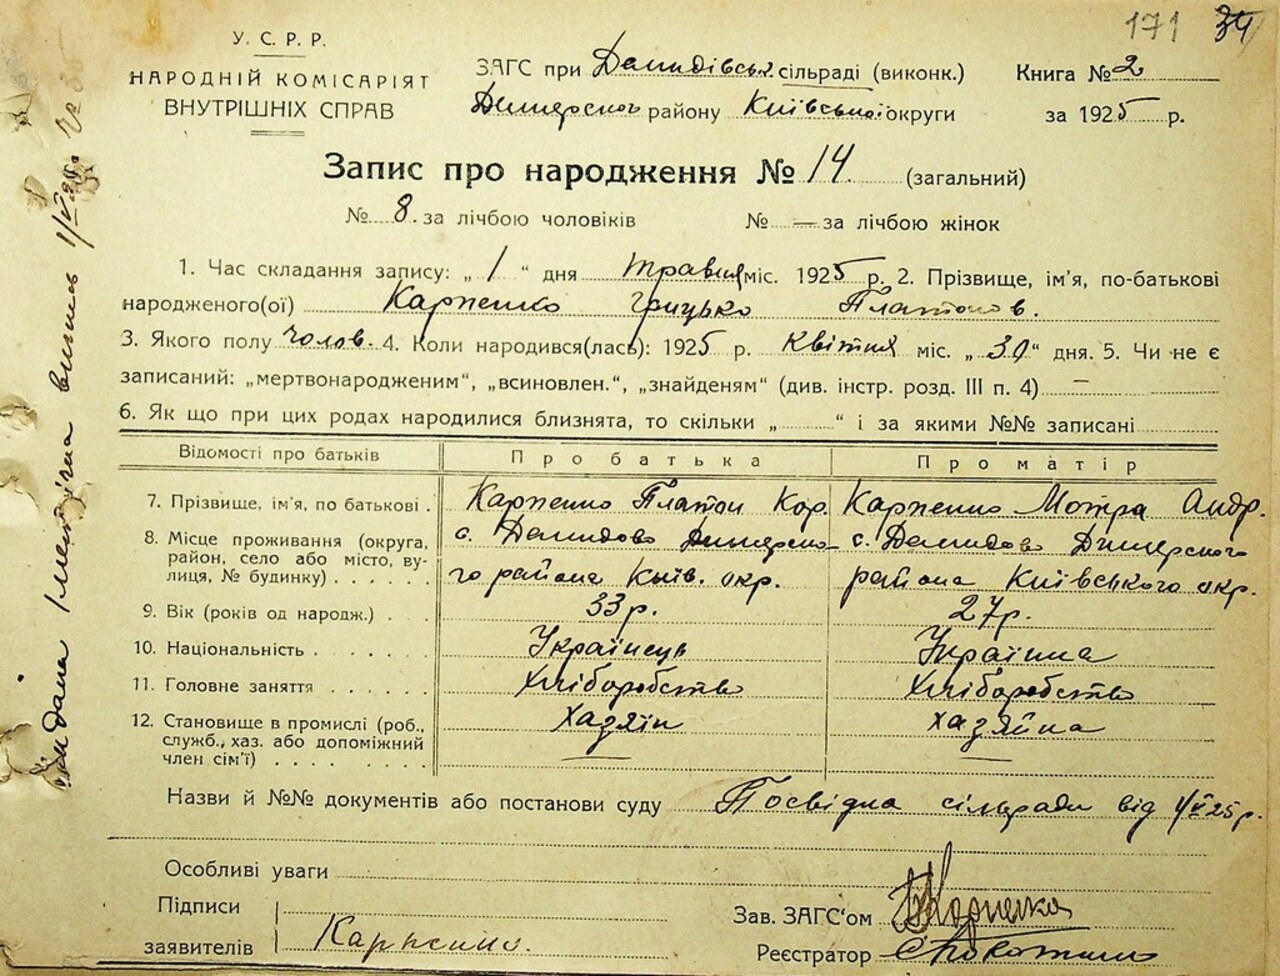 171 34
У. С. Р. Р.
НАРОДНІЙ КОМІСАРІЯТ
ВНУТРІШНІХ СПРАВ
ЗАГС при Демидівськ сільраді (виконк.) Книга № 2
Димерского району Київської округи за 1925 р.
Запис про народження № 14. (загальний)
№ 8. за лічбою чоловіків № — за лічбою жінок
1. Час складання запису: „ 1 “ дня травня міс. 1925 р. 2. Прізвище, ім'я, по-батькові
народженого(ої) Карпенко Грицько Платонов.
3. Якого полу чолов. 4. Коли народився(лась): 1925 р. Квітня міс. „ 30 “ дня. 5. Чи не є
записаний: „мертвонародженим“, „всиновлен.“, „знайденям“ (див. інстр. розд. III п. 4) —
6. Як що при цих родах народилися близнята, то скільки „ “ і за якими №№ записані
Відомості про батьків Про батька Про матір
7. Прізвище, ім'я, по батькові . Карпенко Платон Кор. Карпенко Мотра Андр.
8. Місце проживання (округа, район, село або місто, вулиця, № будинку) с. Демидово Димерско-
го района Київ. окр. с. Демидово Димерского
района Київського окр.
9. Вік (років од народж.) 33 р. 27 р.
10. Національність Українець Українка
11. Головне заняття Хліборобство Хліборобство
12. Становище в промислі (роб., служб., хаз. або допоміжний член сім'ї) хазяїн хазяйка
Назви й №№ документів або постанови суду Посвідка сільради від 1/V 25 р.
Особливі уваги
Підписи
заявителів Карпенко.
Зав. ЗАГС'ом Карпенко
Реєстратор
Видана метрична випись 1/V 25 р. №